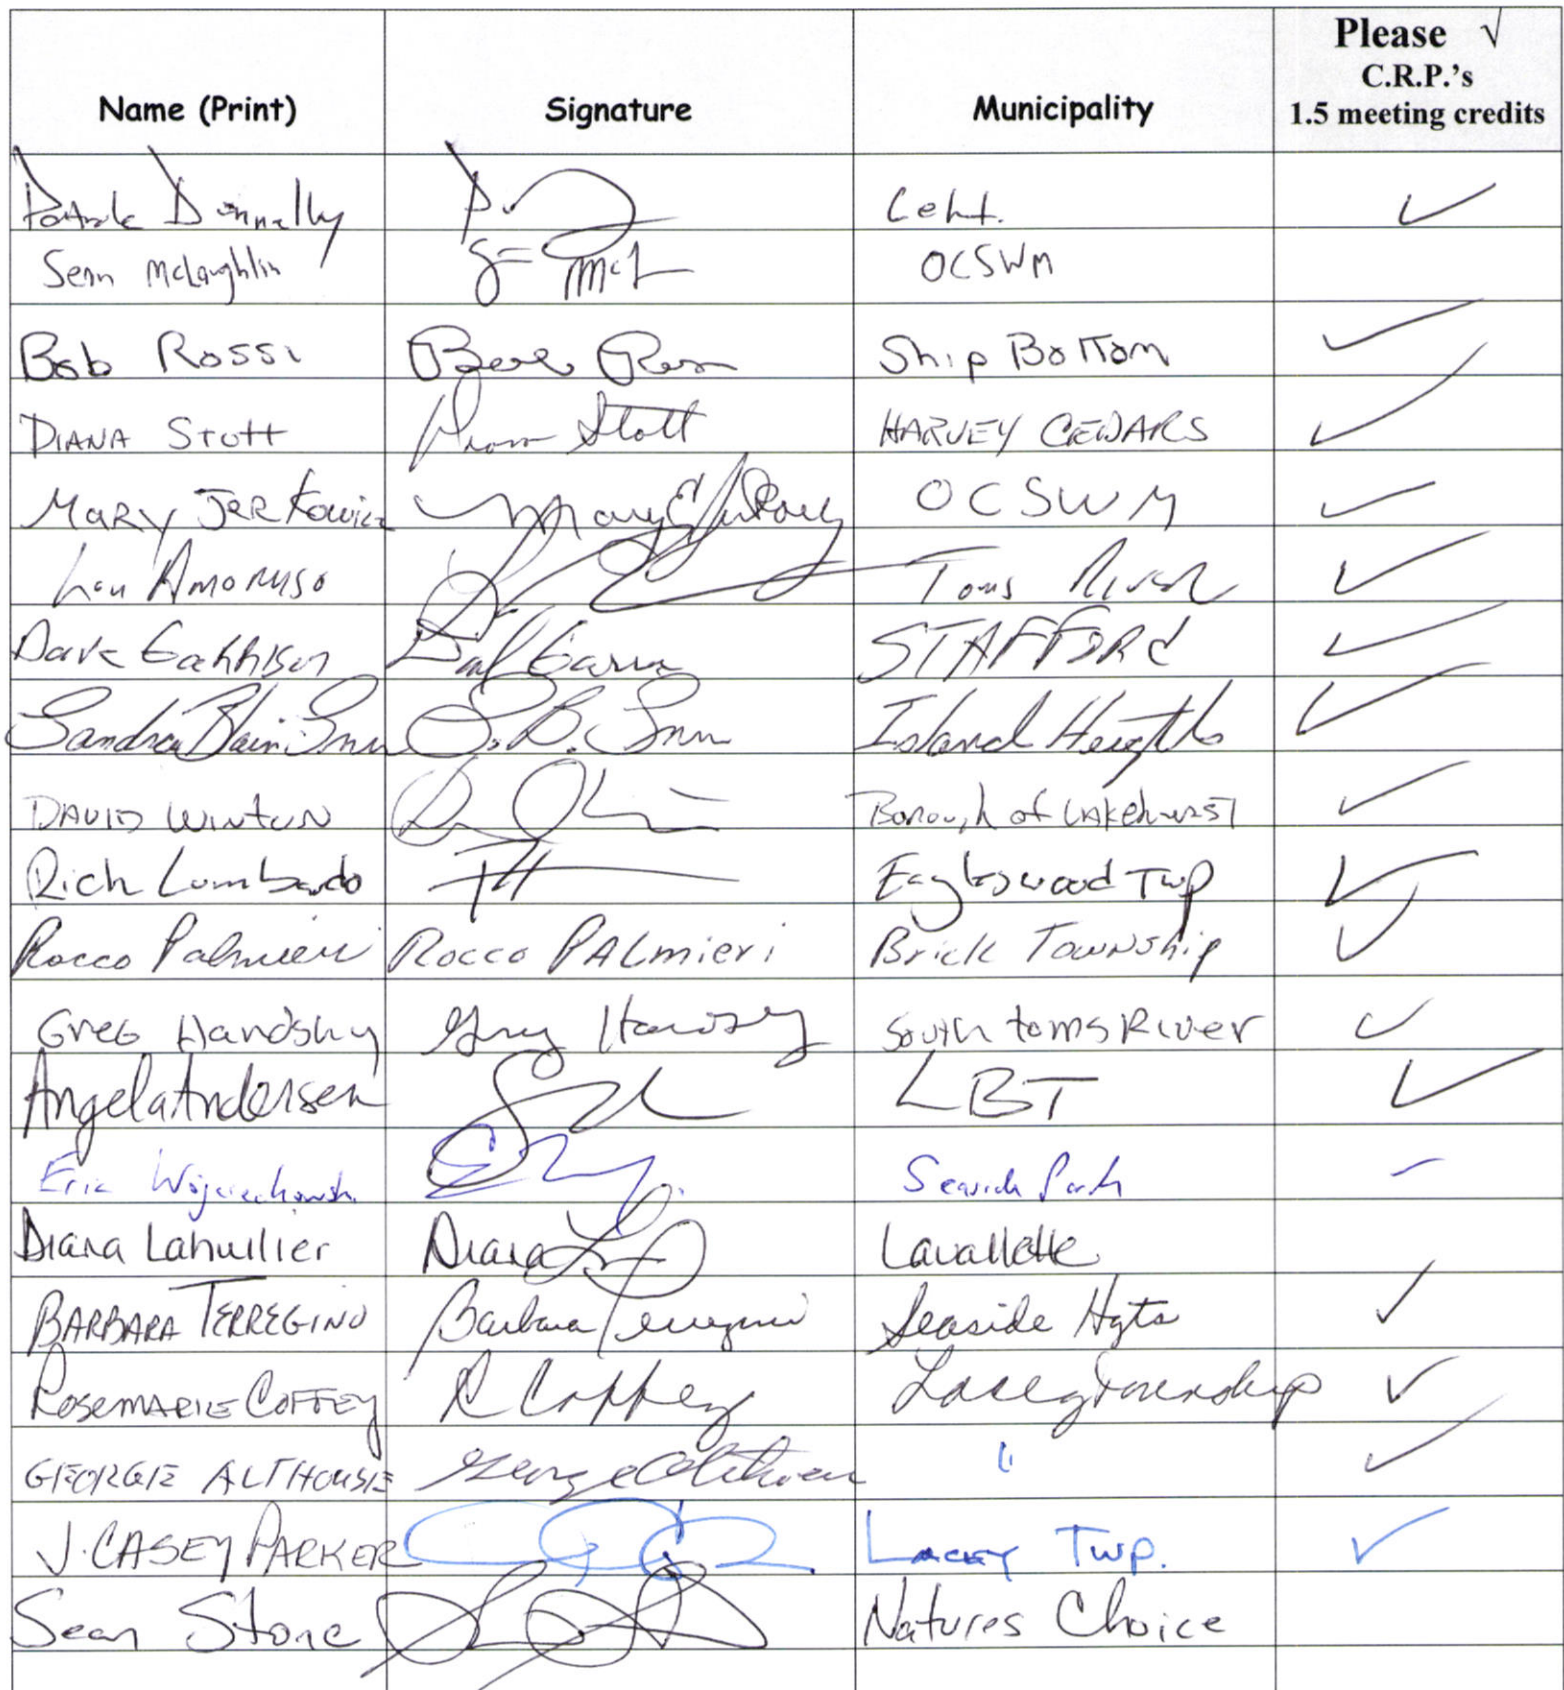 Please √
C.R.P.'s
1.5 meeting credits
Name (Print) Signature Municipality
Patrick Donnelly ✓
Sean McLaughlin OCSWM
Bob Rossi Bob Rossi Ship Bottom ✓
DIANA Stott Diana Stott HARVEY CEDARS ✓
MARY JERKowicz OCSWM ✓
Lou Amoruso Toms River ✓
Dave Garrison STAFFORd ✓
Sandra Blain Snu S. B. Snu Island Heights ✓
DAVID WINTON Borough of LAKEhurst ✓
Rich Lombardo Eagleswood Twp ✓
Rocco Palmieri Rocco PALmieri Brick Township ✓
Greg Handshy South Toms River ✓
Angela Andersen LBT ✓
Eric Wojciechowski Seaside Park –
Diana Lahullier Diana Lavallette
BARBARA TERREGINO Barbara Terregino Seaside Hgts ✓
ROSEMARIE COFFEY R Coffey Lacey Township ✓
GEORGE ALTHOUSE George Althouse " ✓
J. CASEY PARKER Lacey Twp. ✓
Sean Stone Natures Choice